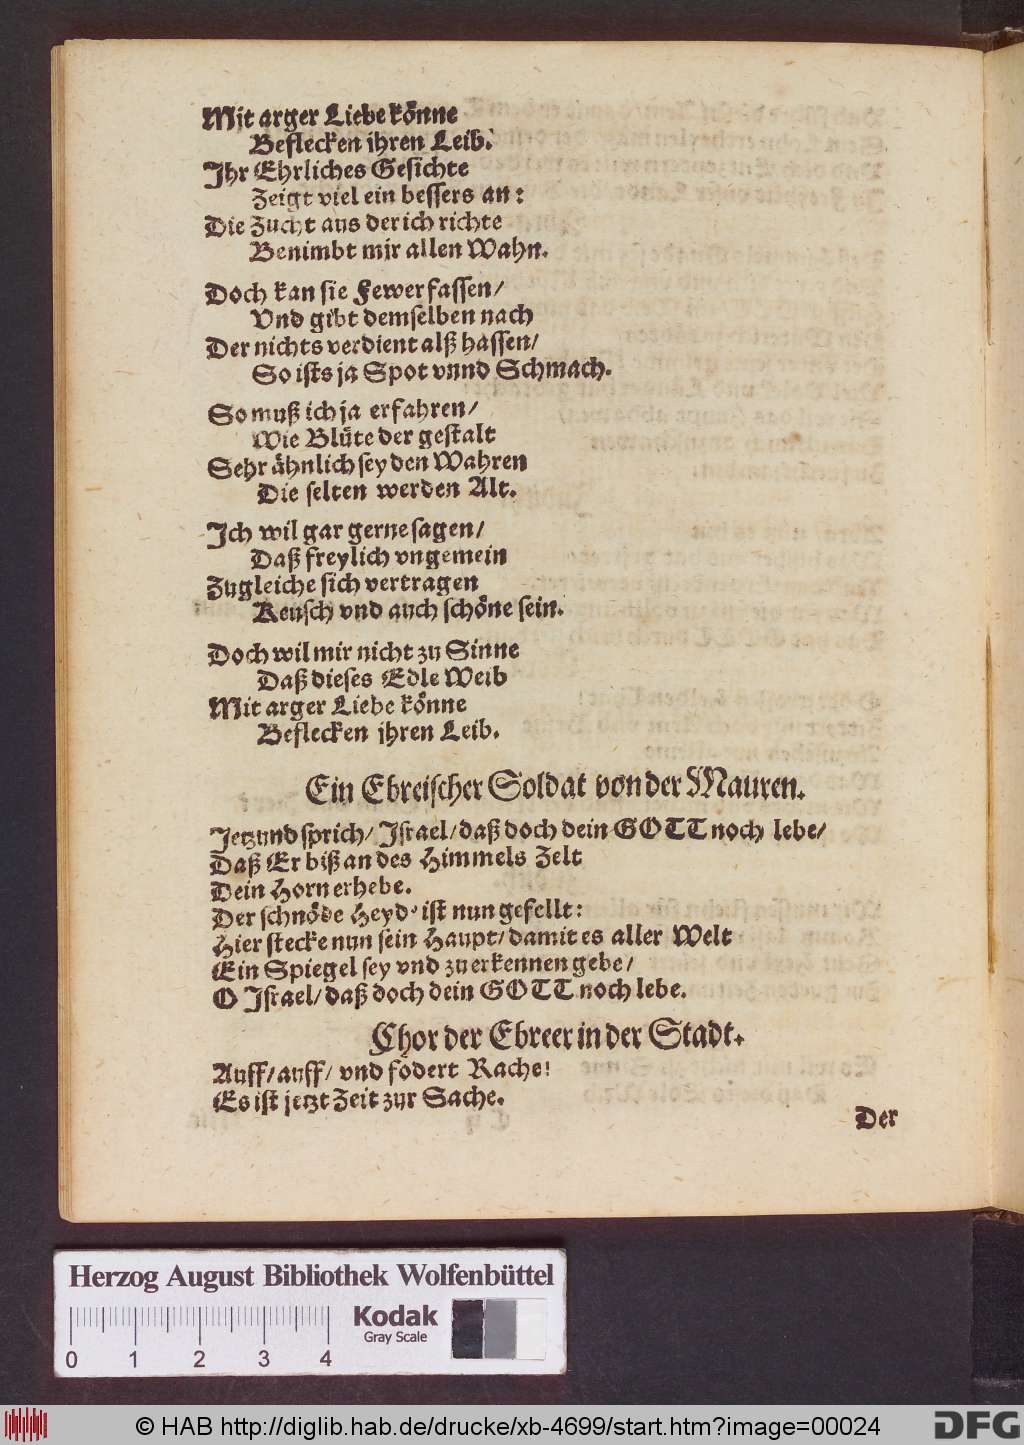 Mit arger Liebe könne
Beflecken ihren Leib.
Ihr Ehrliches Gesichte
Zeigt viel ein bessers an:
Die Zucht aus der ich richte
Benimbt mir allen Wahn.
Doch kan sie Fewer fassen/
Vnd gibt demselben nach
Der nichts verdient alß hassen/
So ists ja Spot vnnd Schmach.
So muß ich ja erfahren/
Wie Blüte der gestalt
Sehr ähnlich sey den Wahren
Die selten werden Alt.
Ich wil gar gerne sagen/
Daß freylich vngemein
Zugleiche sich vertragen
Keusch vnd auch schöne sein.
Doch wil mir nicht zu Sinne
Daß dieses Edle Weib
Mit arger Liebe könne
Beflecken ihren Leib.
Ein Ebreischer Soldat von der Mauren.
Jetzund sprich/ Israel/ daß doch dein GOTT noch lebe/
Daß Er biß an des Himmels Zelt
Dein Horn erhebe.
Der schnöde Heyd' ist nun gefellt:
Hier stecke nun sein Haupt/ damit es aller Welt
Ein Spiegel sey vnd zu erkennen gebe/
O Israel/ daß doch dein GOTT noch lebe.
Chor der Ebreer in der Stadt.
Auff/ auff/ vnd fodert Rache!
Es ist jetzt Zeit zur Sache.
Der
Herzog August Bibliothek Wolfenbüttel
Kodak
Gray Scale
0 1 2 3 4
© HAB http://diglib.hab.de/drucke/xb-4699/start.htm?image=00024
DFG